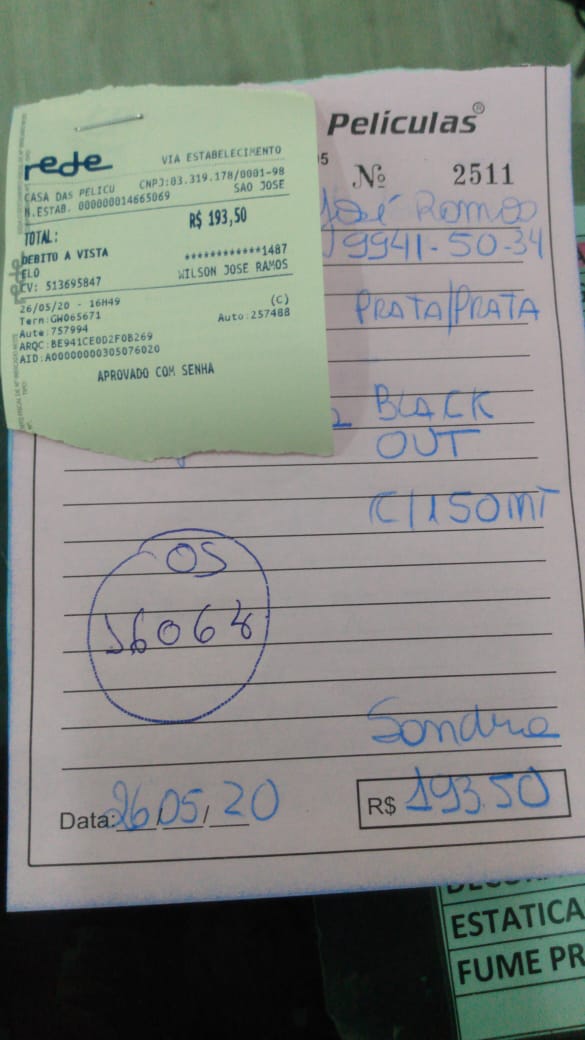 rede
VIA ESTABELECIMENTO
CASA DAS PELICU CNPJ:03.319.178/0001-98
N.ESTAB. 000000014665069 SAO JOSE
TOTAL: R$ 193,50
DEBITO A VISTA
ELO ************1487
CV: 513695847 WILSON JOSE RAMOS
26/05/20 - 16H49 (C)
Term:GW065671
Aute:757994 Auto:257488
ARQC:BE941CE0D2F0B269
AID:A0000000305076020
APROVADO COM SENHA
Películas®
Nº 2511
José Ramos
9941-50-34
PRATA/PRATA
BLACK
OUT
C/1.50MT
OS
Sandra
Data: 26/05/20
R$ 193.50
ESTATICA
FUME PR